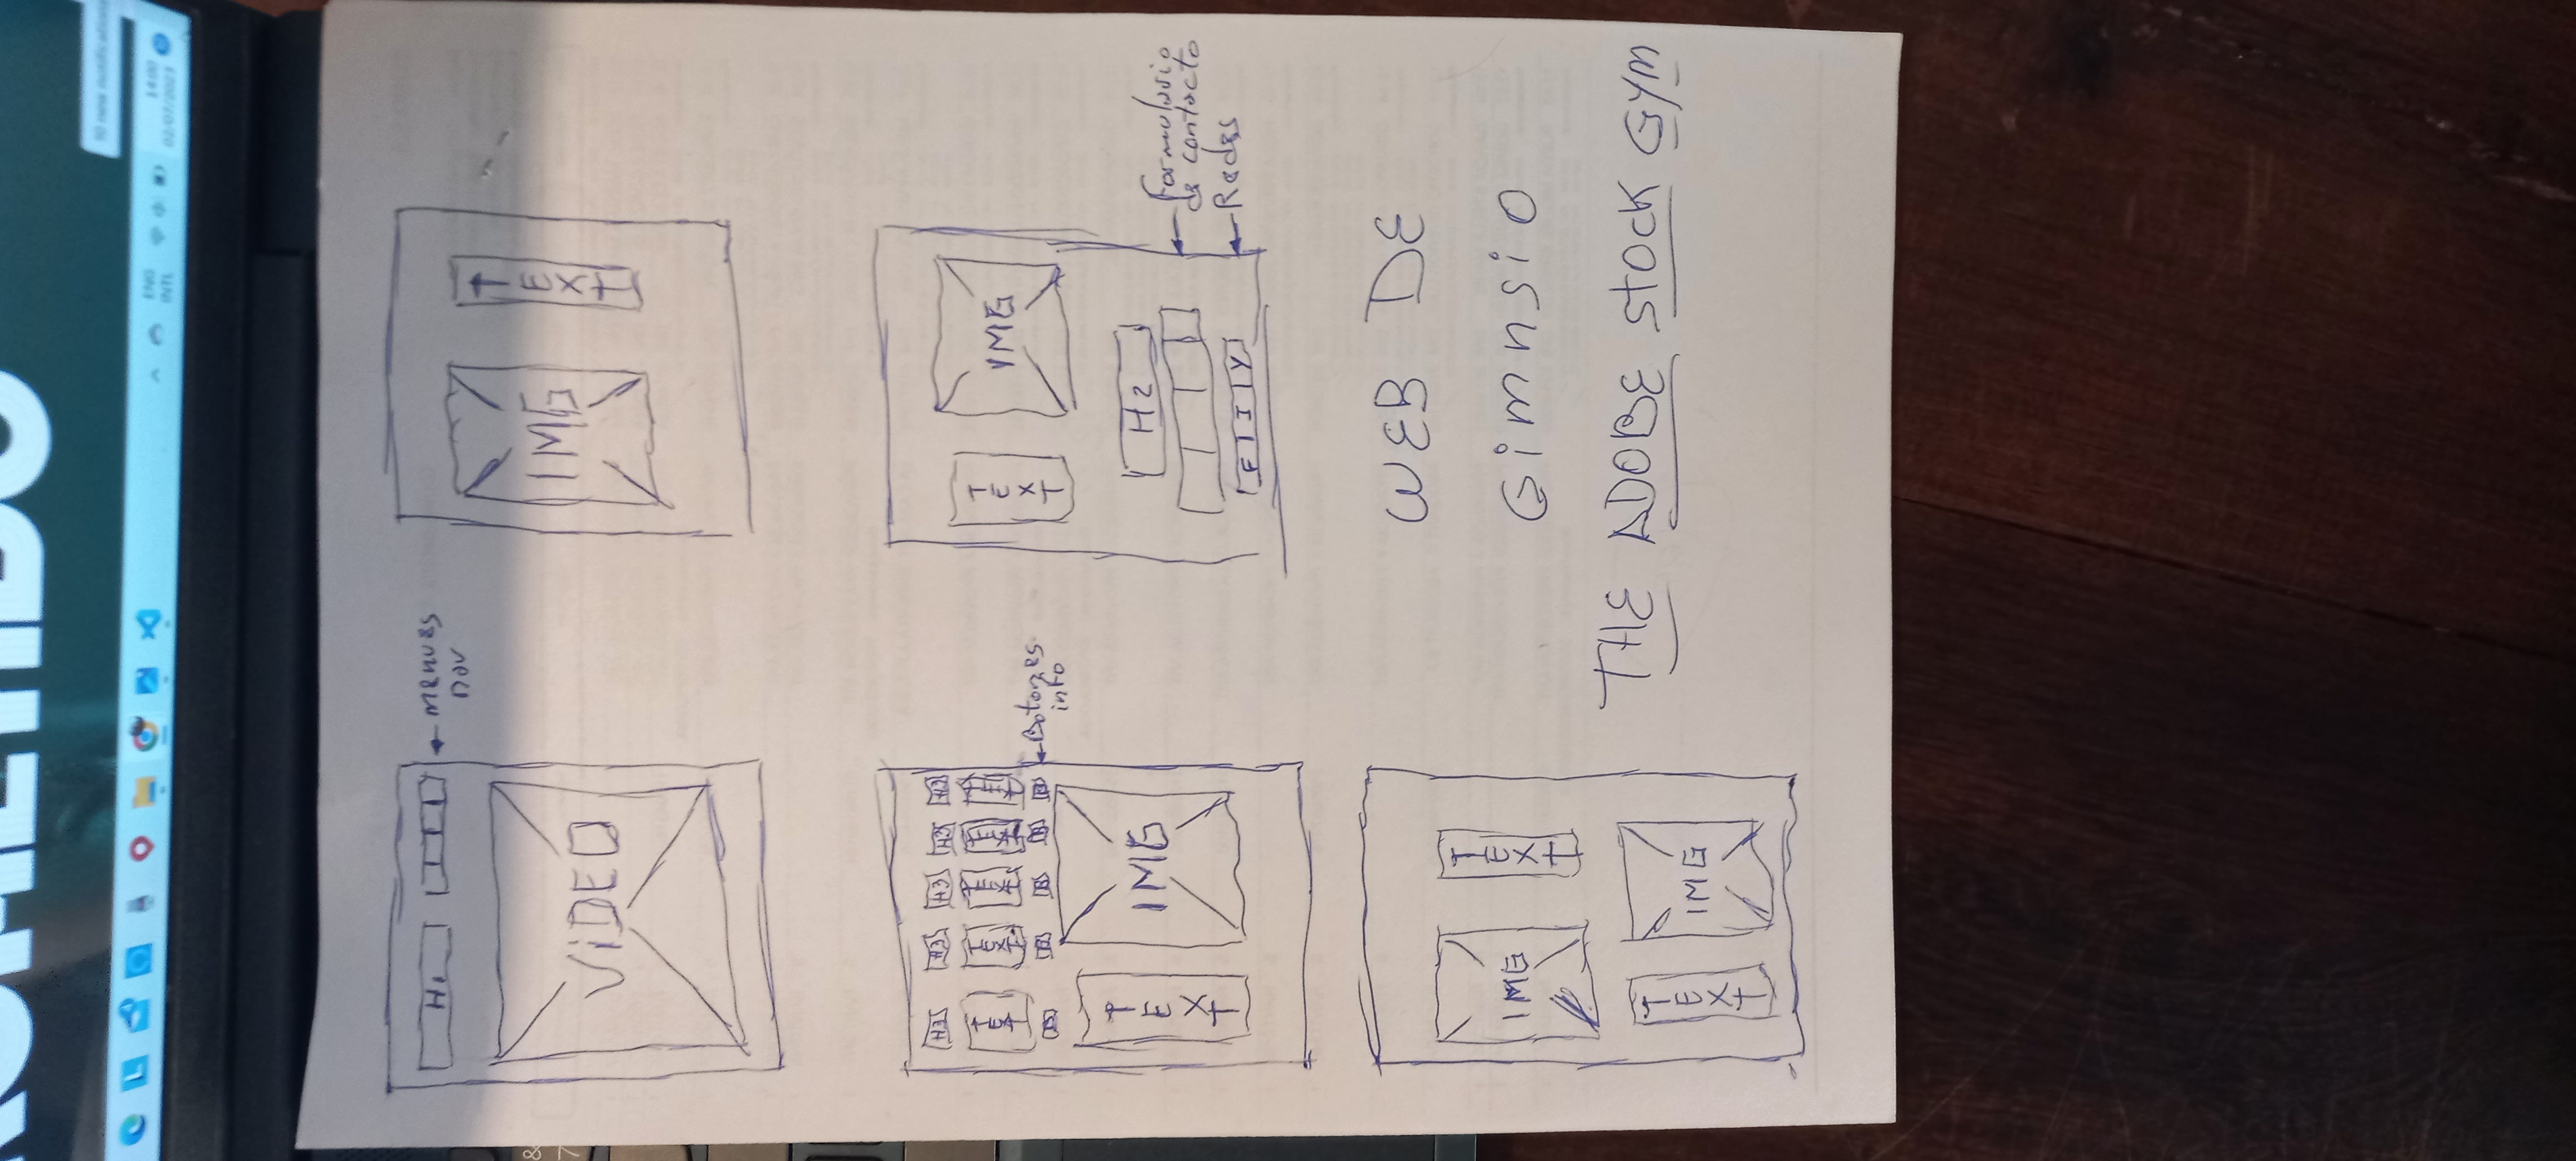 ROMETIDO
10 new notifications
ENG
INTL
14:00
02/07/2023
&
7
H1
MENUES
NAV
VIDEO
IMG
TEXT
H3 H3 H3 H3 H3
TEXT TEXT TEXT TEXT TEXT
B B B B B
Botones
info
TEXT
IMG
TEXT
IMG
H2
Formulario
de contacto
F I Y
Redes
IMG
TEXT
TEXT
IMG
WEB DE
Gimnsio
THE ADOBE STOCK GYM